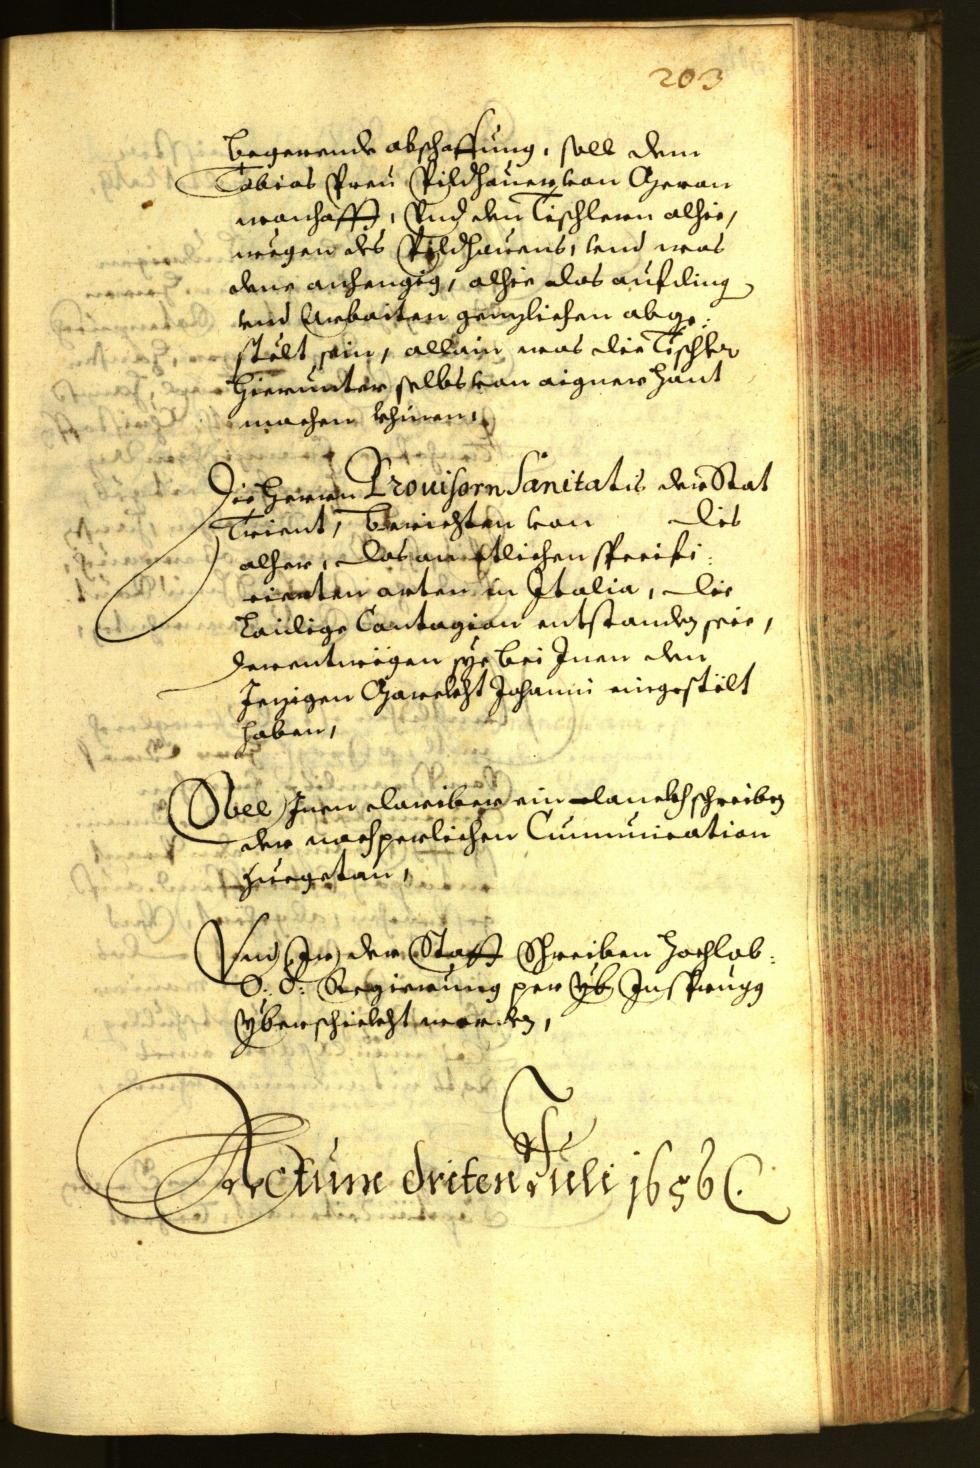 203
begerende abschaffung, soll dem
Tobias Preu Pildhauer, von Gerau
wonhafft, Und den Tischlern alhie,
wegen des Pildhauens, vnd was
deme anhengig, alhie das aufding
vnd Arbaiten genzlichen abge:
stelt sein, allain was die Tischler
hierunter selbs von aigner hant
machen khünen,
Die Herrn Prouisorn Sanitatis der Stat
Trient, berichten von dis
alher, das an etlichen specifi:
cierten orten in Italia, die
laidige Contagion entstanden seie,
derentwegen sye bei Inen den
Jezigen Marckht Johanni eingestelt
haben,
Soll Inen dariber ein danckhschreiben
der nachperlichen Cumunication
zuegetan,
Vnd Ir der Statt Schreiben hochlob:
O: Ö: Regierung per Insprugg
yberschickht worden,
Actum driten Juli 1656